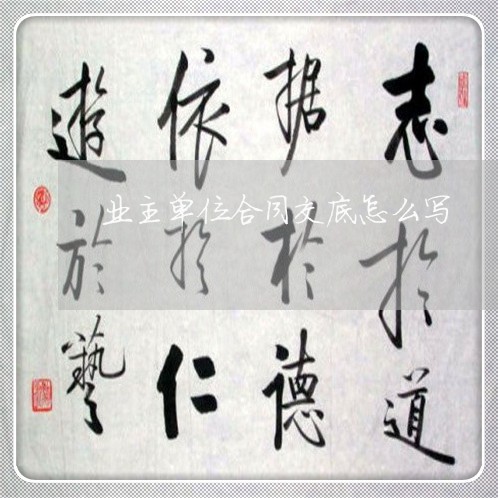 志於道
据於德
依於仁
遊於藝
业主单位合同交底怎么写